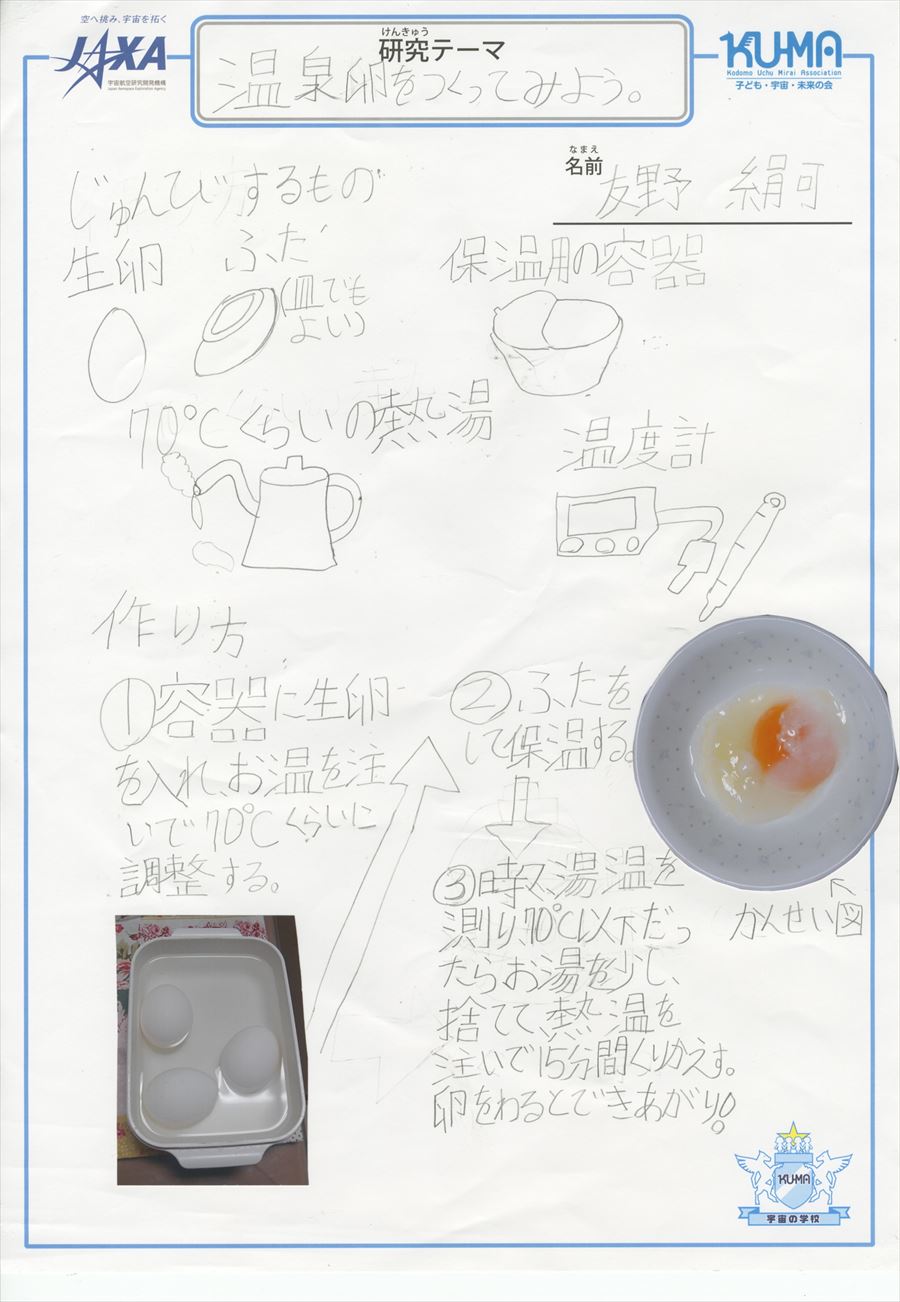 空へ挑み、宇宙を拓く
JAXA
宇宙航空研究開発機構
Japan Aerospace Exploration Agency
けんきゅう
研究テーマ
温泉卵をつくってみよう。
KUMA
Kodomo Uchu Mirai Association
子ども・宇宙・未来の会
なまえ
名前
友野 絹可
じゅんびするもの
生卵 ふた
(皿でも
よい)
保温用の容器
70℃くらいの熱湯
温度計
作り方
①容器に生卵
を入れ、お温を注
いで70℃くらいに
調整する。
②ふたを
して保温する。
③時々、湯温を
測り、70℃以下だっ
たらお湯を少し、
捨てて、熱温を
注いで15分間くりかえす。
卵をわるとできあがり!
かんせい図
KUMA
宇宙の学校